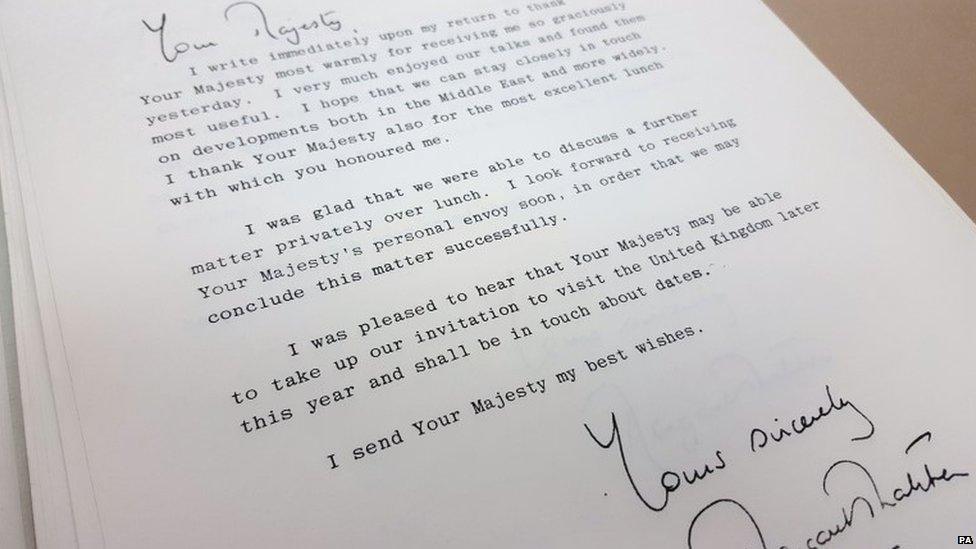 Your Majesty,
I write immediately upon my return to thank
Your Majesty most warmly for receiving me so graciously
yesterday. I very much enjoyed our talks and found them
most useful. I hope that we can stay closely in touch
on developments both in the Middle East and more widely.
I thank Your Majesty also for the most excellent lunch
with which you honoured me.
I was glad that we were able to discuss a further
matter privately over lunch. I look forward to receiving
Your Majesty's personal envoy soon, in order that we may
conclude this matter successfully.
I was pleased to hear that Your Majesty may be able
to take up our invitation to visit the United Kingdom later
this year and shall be in touch about dates.
I send Your Majesty my best wishes.
Yours sincerely
Margaret Thatcher
PA